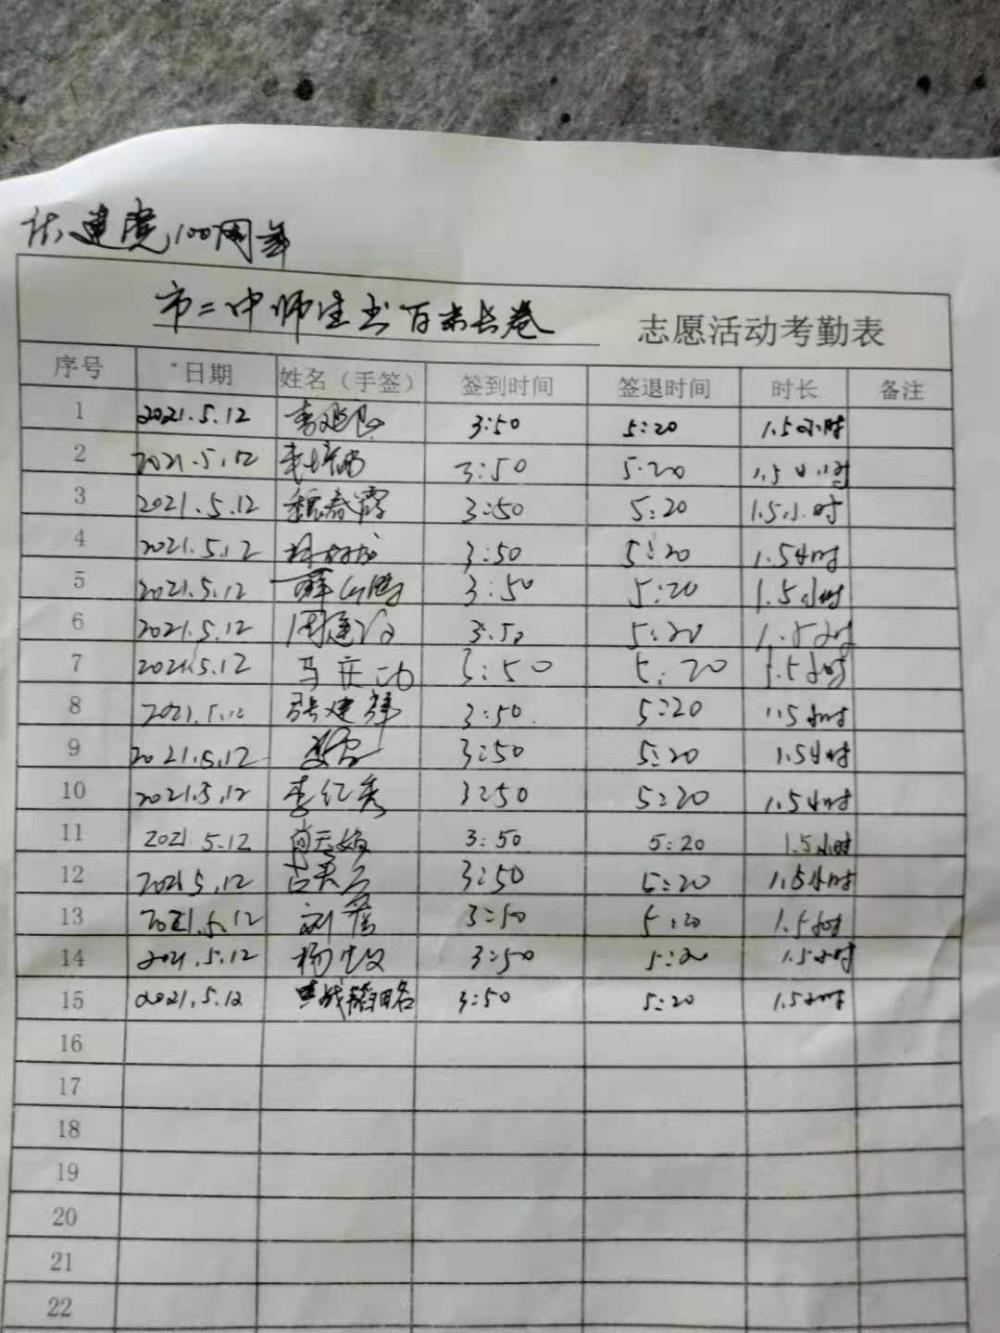 建党100周年
市二中师生书百米长卷 志愿活动考勤表
序号 日期 姓名（手签） 签到时间 签退时间 时长 备注
1 2021.5.12 3:50 5:20 1.5小时
2 2021.5.12 3:50 5:20 1.5小时
3 2021.5.12 魏春霞 3:50 5:20 1.5小时
4 2021.5.12 3:50 5:20 1.5小时
5 2021.5.12 3:50 5:20 1.5小时
6 2021.5.12 3:50 5:20 1.5小时
7 2021.5.12 3:50 5:20 1.5小时
8 2021.5.12 张建辉 3:50 5:20 1.5小时
9 2021.5.12 3:50 5:20 1.5小时
10 2021.5.12 李红秀 3:50 5:20 1.5小时
11 2021.5.12 3:50 5:20 1.5小时
12 2021.5.12 3:50 5:20 1.5小时
13 2021.5.12 3:50 5:20 1.5小时
14 2021.5.12 3:50 5:20 1.5小时
15 2021.5.12 3:50 5:20 1.5小时
16
17
18
19
20
21
22